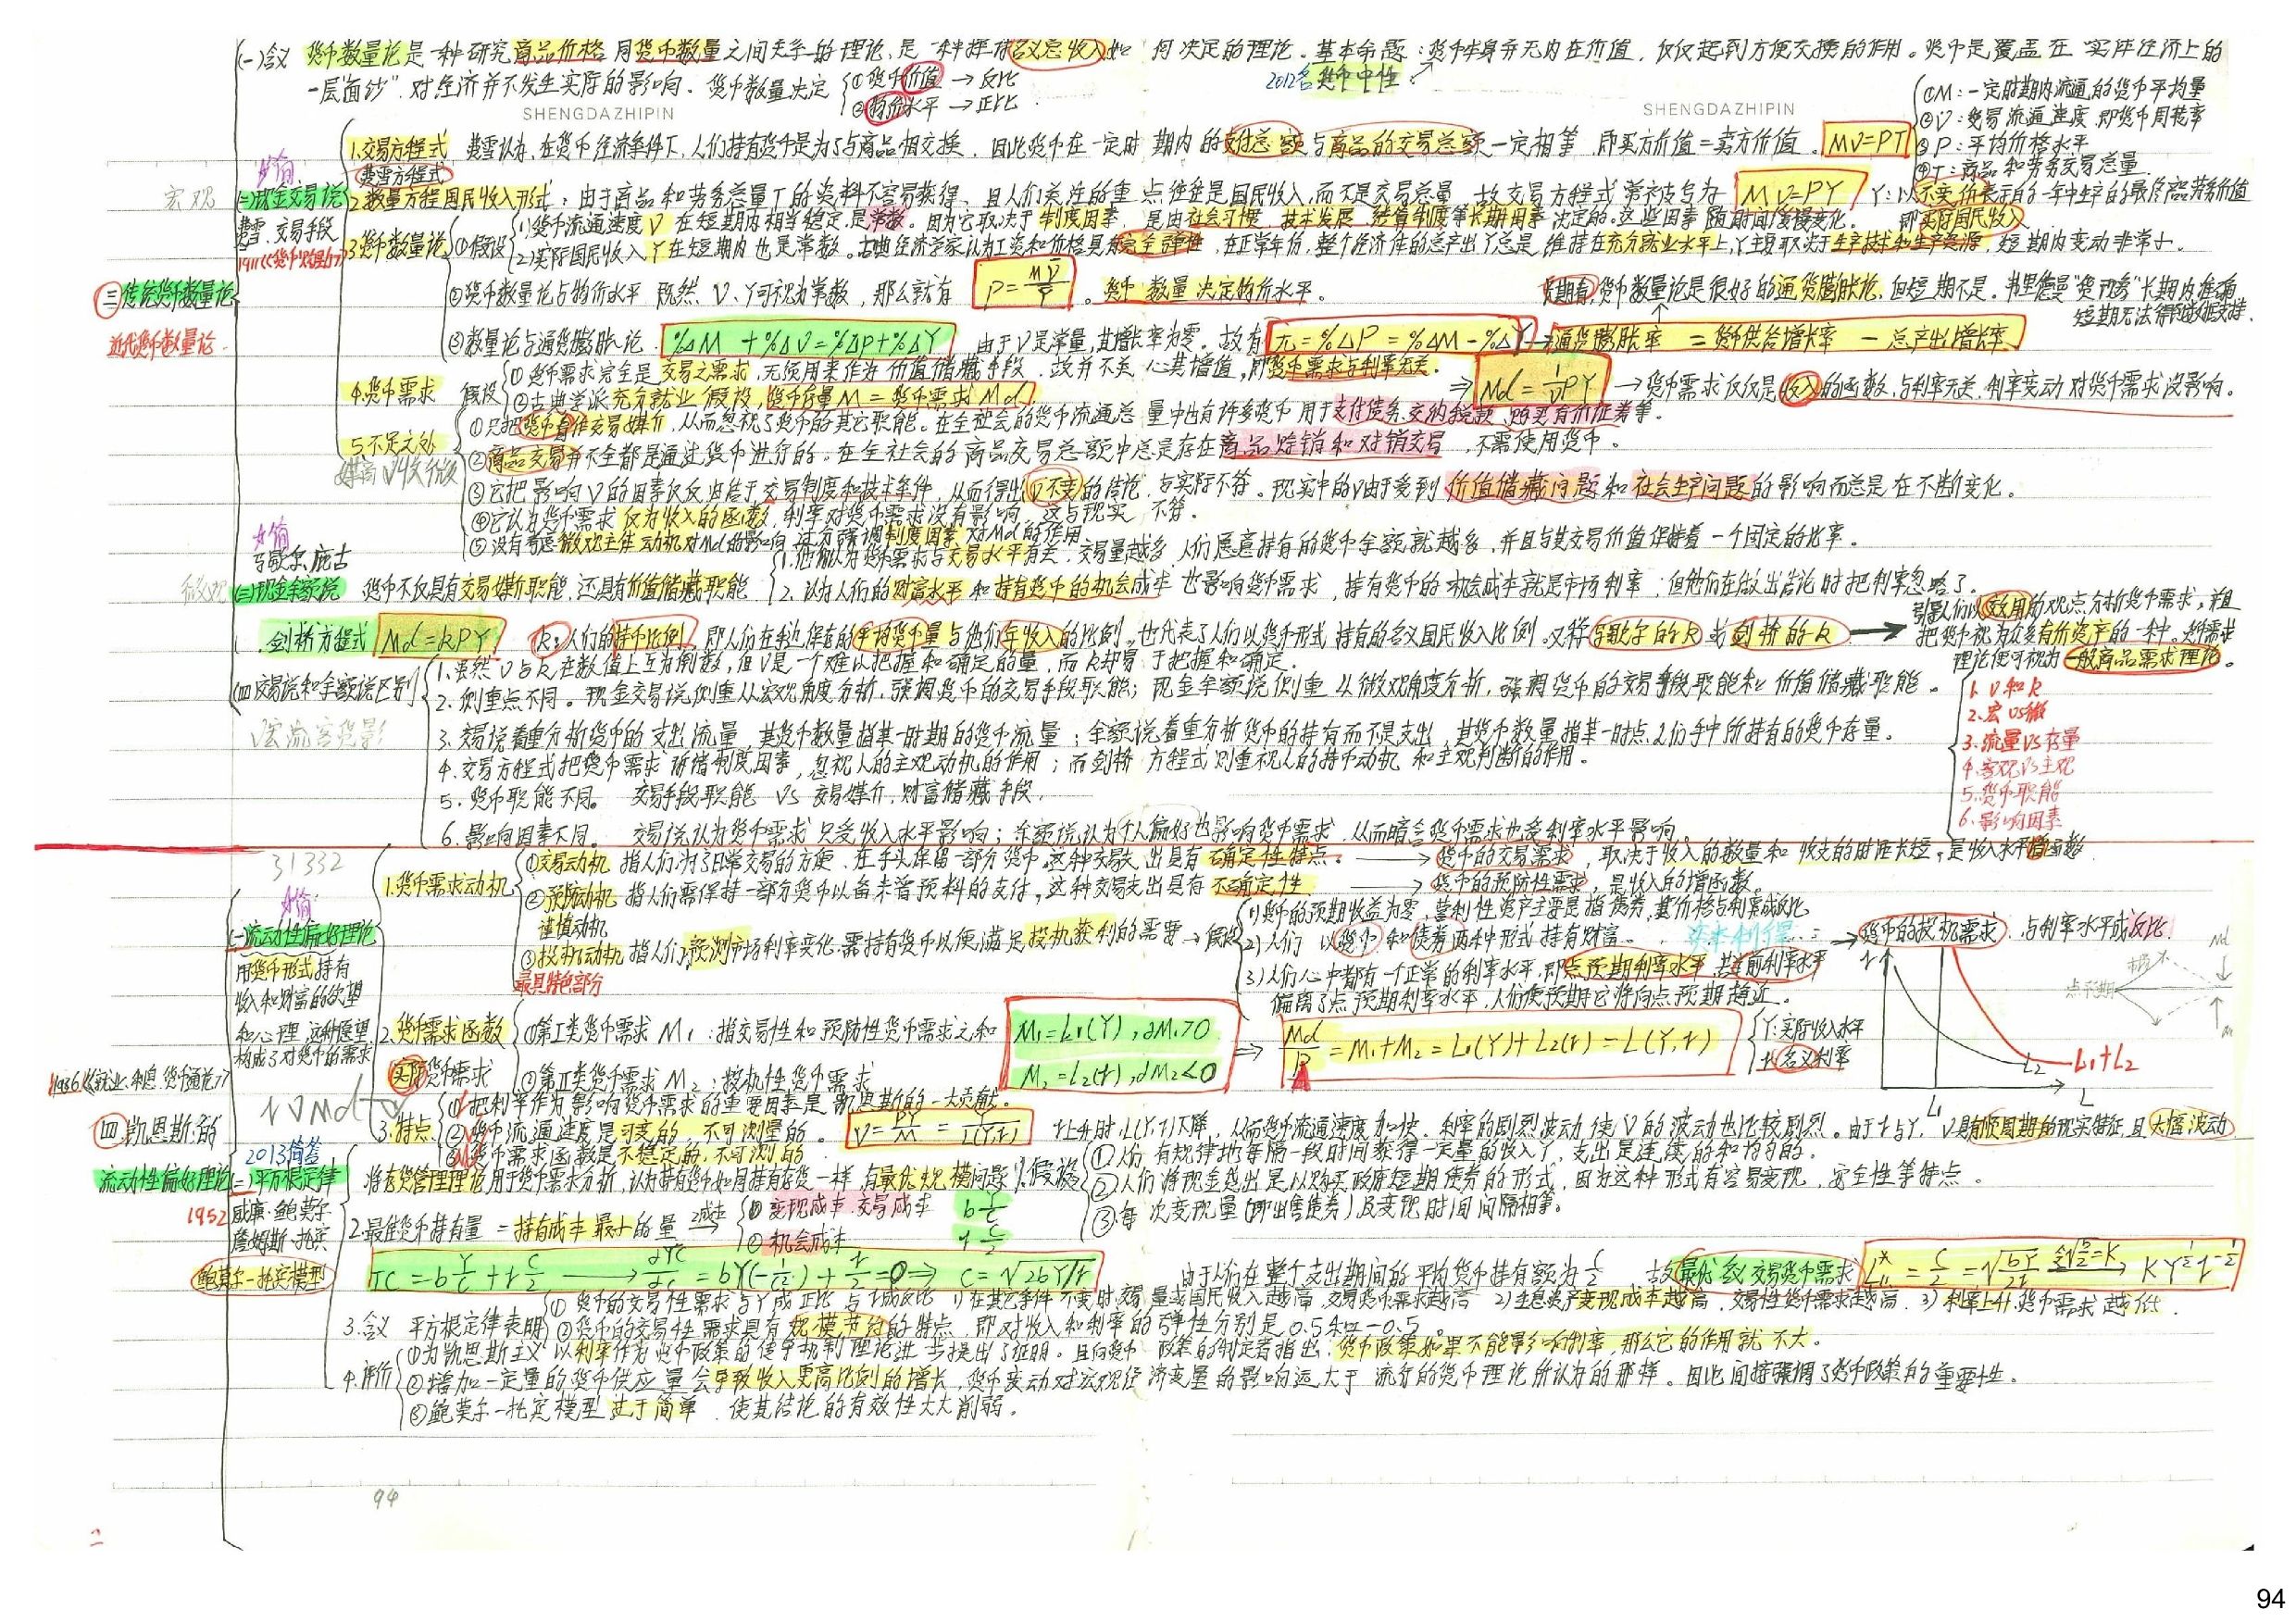 (一)含义 货币数量论是一种研究商品价格同货币数量之间关系的理论,是一种探讨名义总收入如何决定的理论。基本命题:货币本身并无内在价值,仅仅起到方便交换的作用。货币是覆盖在实体经济上的
一层"面纱",对经济并不发生实际的影响。货币数量决定 {①货币价值→反比 ②物价水平→正比
2012名 货币中性
SHENGDAZHIPIN
SHENGDAZHIPIN
①M:一定时期内流通的货币平均量
②V:交易流通速度,即货币周转率
③P:平均价格水平
④T:商品和劳务交易总量
1.交易方程式 费雪认为,在货币经济条件下,人们持有货币是为了与商品相交换,因此货币在一定时期内的支付总额与商品的交易总额一定相等,即买方价值=卖方价值。MV=PT
费雪方程式
宏观
(二)现金交易说
费雪、交易手段
2.数量方程国民收入形式:由于商品和劳务总量T的资料不容易获得,且人们关注的重点往往是国民收入,而不是交易总量,故交易方程式常被写为 MV=PY Y:以不变价表示的一年中生产的最终产品劳务价值
即实际国民收入
3.货币数量论 ①假设 1)货币流通速度V在短期内相当稳定,是常数。因为它取决于制度因素,是由社会习惯、技术发展、结算制度等长期因素决定的。这些因素随时间缓慢变化。
2)实际国民收入Y在短期内也是常数。古典经济学家认为工资和价格具有完全弹性,在正常年份,整个经济体的总产出Y总是维持在充分就业水平上,Y主要取决于生产技术和生产资源,短期内变动非常小。
三.传统货币数量论
近代货币数量论
②货币数量论与物价水平 既然V、Y可视为常数,那么就有 P=MV̄/Ȳ 。货币数量决定物价水平。
长期看,货币数量论是很好的通货膨胀论,但短期不是。弗里德曼"货币"长期内准确
短期无法得到数据支持.
③数量论与通货膨胀论 %ΔM+%ΔV=%ΔP+%ΔY 由于V是常量,其增长率为零。故有 π=%ΔP=%ΔM-%ΔY→通货膨胀率=货币供给增长率-总产出增长率
4.货币需求 假设 ①货币需求完全是交易之需求,无须用来作为价值储藏手段,故并不关心其增值,即货币需求与利率无关.
②古典学派充分就业假设,货币存量M=货币需求Md
⇒ Md=1/V PY →货币需求仅仅是收入的函数,与利率无关,利率变动对货币需求没影响。
5.不足之处 ①只把货币看作交易媒介,从而忽视了货币的其它职能。在全社会的货币流通总量中也有许多货币用于支付债务、交纳税款、购买有价证券等.
②商品交易并不全都是通过货币进行的。在全社会的商品交易总额中总是存在商品赊销和对销交易,不需使用货币。
③它把影响V的因素仅仅归结于交易制度和技术条件,从而得出V不变的结论,与实际不符。现实中的V由于受到价值储藏问题和社会生产问题的影响而总是在不断变化。
④它认为货币需求仅为收入的函数,利率对货币需求没有影响,这与现实不符.
⑤没有考虑微观主体动机对Md的影响,过分强调制度因素对Md的作用
马歇尔、庇古
微观 (三)现金余额说 货币不仅具有交易媒介职能,还具有价值储藏职能
1.他们认为货币需求与交易水平有关,交易量越多,人们愿意持有的货币余额就越多,并且与其交易价值保持着一个固定的比率。
2.认为人们的财富水平和持有货币的机会成本也影响货币需求,持有货币的机会成本就是市场利率,但他们在做出结论时把利率忽略了。
剑桥方程式 Md=kPY k:人们的持币比例,即人们在手边保存的平均货币量与他们年收入的比例。也代表了人们以货币形式持有的名义国民收入比例。又称马歇尔的k或剑桥的k
引导人们以效用的观点分析货币需求,并且
把货币视为众多有价资产的一种。货币需求
理论便可视为一般商品需求理论。
(四)交易说和余额说区别 1.虽然V与k在数值上互为倒数,但V是一个难以把握和确定的量,而k却易于把握和确定.
2.侧重点不同。现金交易说侧重从宏观角度分析,强调货币的交易手段职能;现金余额说侧重从微观角度分析,强调货币的交易手段职能和价值储藏职能。
3.交易说着重分析货币的支出流量,其货币数量指某一时期的货币流量;余额说着重分析货币的持有而不是支出,其货币数量指某一时点人们手中所持有的货币存量。
4.交易方程式把货币需求诉诸制度因素,忽视人的主观动机的作用;而剑桥方程式则重视人的持币动机和主观判断的作用。
5.货币职能不同。 交易手段职能 VS 交易媒介,财富储藏手段.
6.影响因素不同。 交易说认为货币需求只受收入水平影响;余额说认为个人偏好也影响货币需求,从而暗含货币需求也受利率水平影响
1.V和k
2.宏VS微
3.流量VS存量
4.客观VS主观
5.货币职能
6.影响因素
31332
(一)流动性偏好理论
用货币形式持有
收入和财富的欲望
和心理,这种愿望
构成了对货币的需求
1.货币需求动机 ①交易动机 指人们为了日常交易的方便,在手头保留一部分货币,这种交易支出具有确定性特点。→货币的交易需求,取决于收入的数量和收支的时距长短,是收入水平增函数
②预防动机 指人们需保持一部分货币以备未曾预料的支付。这种交易支出具有不确定性→货币的预防性需求,是收入的增函数。
谨慎动机
③投机动机 指人们预测市场利率变化,需持有货币以便满足投机获利的需要→假设
最具特色部分
1)货币的预期收益为零,营利性资产主要是指债券,其价格与利率成反比
2)人们以货币和债券两种形式持有财富.
3)人们心中都有一个正常的利率水平,即点预期利率水平,其当前利率水平
偏离了点预期利率水平,人们便预期它将向点预期趋近.
→货币的投机需求,与利率水平成反比
r L1 L2 L1+L2 L
2.货币需求函数 ①第Ⅰ类货币需求M1:指交易性和预防性货币需求之和
实际货币需求 ②第Ⅱ类货币需求M2:投机性货币需求
M1=L1(Y),dM1>0
M2=L2(r),dM2<0
⇒ Md/P=M1+M2=L1(Y)+L2(r)=L(Y,r) {Y:实际收入水平 r:名义利率
1936《就业、利息、货币通论》
四.凯恩斯的
流动性偏好理论
3.特点 ①把利率作为影响货币需求的重要因素是凯恩斯的一大贡献.
②货币流通速度是可变的,不可测量的。V=PY/M=Y/L(Y,r) r上升时,L(Y,r)下降,从而货币流通速度加快.利率的剧烈波动使V的波动也比较剧烈。由于r与Y,V具有顺周期的现实特征,且大幅波动
③货币需求函数是不稳定的,不可测的
2013简答
(二)平方根定律
1952 威廉·鲍莫尔
詹姆斯·托宾
鲍莫尔-托宾模型
将存货管理理论用于货币需求分析,认为持有货币如同持有存货一样,有最优规模问题 1.假设 ①人们有规律地每隔一段时间获得一定量的收入Y,支出是连续的和均匀的.
②人们将现金贷出是以购买政府短期债券的形式,因为这种形式有容易变现,安全性等特点。
③每次变现量(即出售债券)及变现时间间隔相等。
2.最佳货币持有量=持有成本最小的量 2成本→ ①变现成本 交易成本 b Y/C
②机会成本 r C/2
TC=b Y/C+r C/2 → dTC/dC=bY(-1/C²)+r/2=0⇒ C=√2bY/r 由于人们在整个支出期间的平均货币持有额为C/2 故最优名义交易货币需求 L*=C/2=√bY/2r → KY^½ r^-½
3.含义 平方根定律表明 ①货币的交易性需求与Y成正比,与r成反比 1)在其它条件不变时,交易量或国民收入越高,交易货币需求越高 2)生息资产变现成本越高,交易性货币需求越高.3)利率上升,货币需求越低.
②货币的交易性需求具有规模节约的特点,即对收入和利率的弹性分别是0.5和-0.5。
4.评价 ①为凯恩斯主义以利率作为货币政策的传导机制理论进一步提出了证明。且向货币政策的制定者指出:货币政策如果不能影响利率,那么它的作用就不大。
②增加一定量的货币供应量会导致收入更高比例的增长,货币变动对宏观经济变量的影响远大于流行的货币理论所认为的那样。因此间接强调了货币政策的重要性。
③鲍莫尔-托宾模型过于简单,使其结论的有效性大大削弱。
94
94